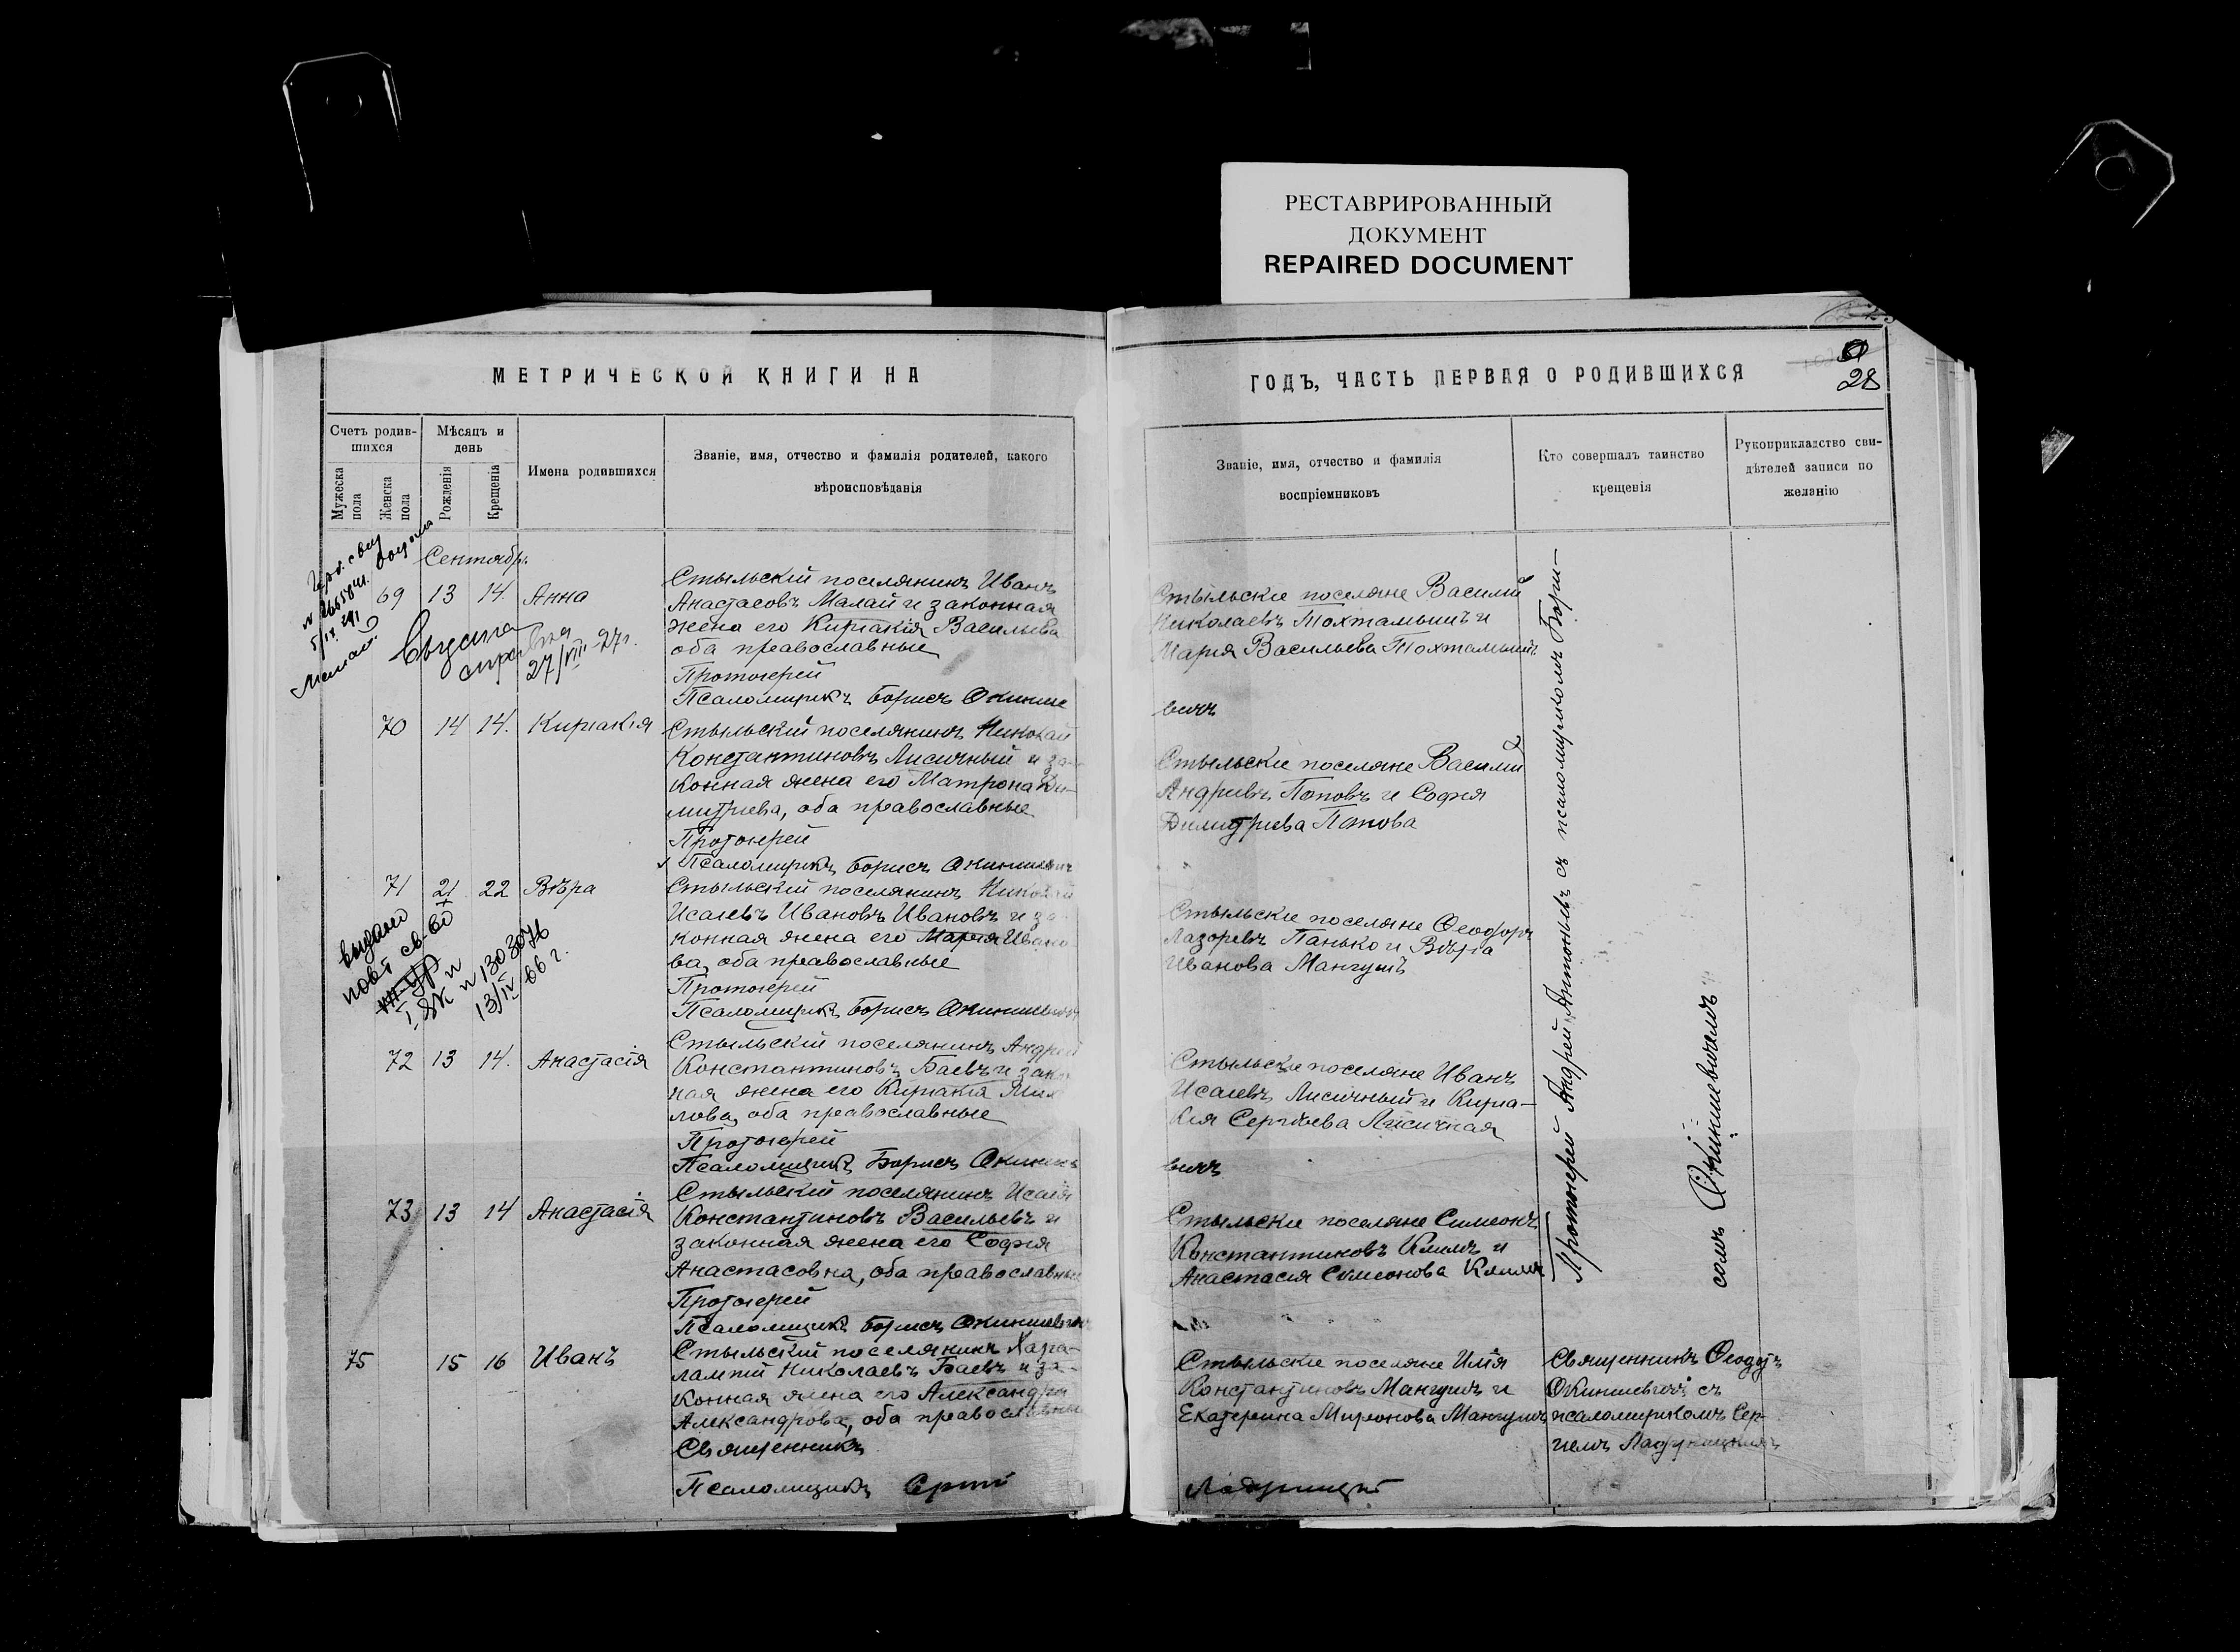 РЕСТАВРИРОВАННЫЙ
ДОКУМЕНТ
REPAIRED DOCUMENT
28
МЕТРИЧЕСКОЙ КНИГИ НА
Счетъ родив-
шихся
Мѣсяцъ и
день
Мужеска
пола
Женска
пола
Рожденія
Крещенія
Имена родившихся
Званіе, имя, отчество и фамилія родителей, какого
вѣроисповѣданія
Сентябр.
69 13 14. Анна
Стыльскій поселянинъ Иванъ
Анастасовъ Малай и законная
жена его Киріакія Васильева
оба православные
Протоіерей
Псаломщикъ Борисъ Окинше
Выдана
справка
27/VIII-27г.
70 14 14. Киріакія
Стыльскій поселянинъ Николай
Константиновъ Лисичный и за-
конная жена его Матрона Ди-
митріева, оба православные
Протоіерей
Псаломщикъ Борисъ Окиншевичъ
71 21 22 Вѣра
Стыльскій поселянинъ Николай
Исаевъ Ивановъ Ивановъ и за
конная жена его Марія Ивано
ва, оба православные
Протоіерей
Псаломщикъ Борисъ Окиншевичъ
выдано
повт св-во
I ЯК № 130307
13/IV-66 г.
72 13 14. Анастасія
Стыльскій поселянинъ Андрей
Константиновъ Баевъ и зако
ная жена его Киріакія
лова, оба православные
Протоіерей
Псаломщикъ Борисъ Окинше
73 13 14 Анастасія
Стыльскій поселянинъ Исаія
Константиновъ Васильевъ и
законная жена его Софія
Анастасовна, оба православные
Протоіерей
Псаломщикъ Борисъ Окиншевичъ
75 15 16 Иванъ
Стыльскій поселянинъ Хара-
лампій Николаевъ Баевъ и за-
конная жена его Александра
Александрова, оба православные
Священникъ
Псаломщикъ Сергій
ГОДЪ, ЧАСТЬ ПЕРВАЯ О РОДИВШИХСЯ
Званіе, имя, отчество и фамилія
воспріемниковъ
Кто совершалъ таинство
крещенія
Рукоприкладство сви-
дѣтелей записи по
желанію
Стыльскіе поселяне Василій
Николаевъ Тохтамышъ и
Марія Васильева Тохтамышъ
вичъ
Стыльскіе поселяне Василій
Андреевъ Поповъ и Софія
Димитріева Попова
Стыльскіе поселяне Феодоръ
Лазоревъ Панько и Вѣра
Иванова Мангушъ
Стыльскіе поселяне Иванъ
Исаевъ Лисичный и Киріа-
кія Сергѣева Лисичная
вичъ
Стыльскіе поселяне Симеонъ
Константиновъ Климъ и
Анастасія Симеонова Климъ
Протоіерей Андрей Антоновъ съ псаломщикомъ Бори-
сомъ Окиншевичемъ
Стыльскіе поселяне Илія
Константиновъ Мангушъ и
Екатерина Миронова Мангушъ
Священникъ Феодотъ
Окиншевичъ съ
псаломщикомъ Сер-
гіемъ